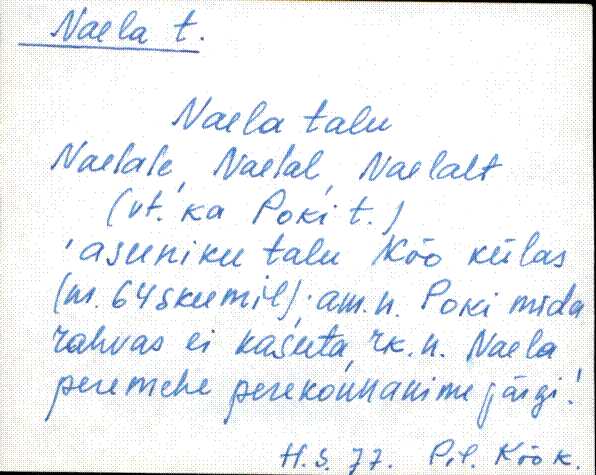 Naela t.
Naela talu
Naelale, Naelal, Naelalt
(vt. ka Poki t.)
'asuniku talu Kõo külas
am. n. Poki mida
rahvas ei kasuta, rk. n. Naela
peremehe perekonnanime järgi!
H.S. 77. Pil. Kõo k.